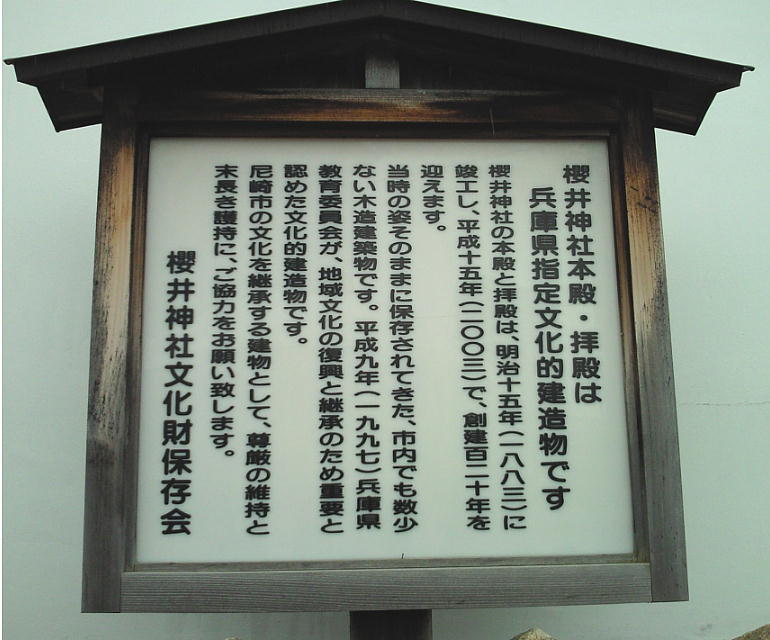 櫻井神社本殿・拝殿は
兵庫県指定文化的建造物です
櫻井神社の本殿と拝殿は、明治十五年(一八八三)に
竣工し、平成十五年(二〇〇三)で、創建百二十年を
迎えます。
当時の姿そのままに保存されてきた、市内でも数少
ない木造建築物です。平成九年(一九九七)兵庫県
教育委員会が、地域文化の復興と継承のため重要と
認めた文化的建造物です。
尼崎市の文化を継承する建物として、尊厳の維持と
末長き護持に、ご協力をお願い致します。
櫻井神社文化財保存会